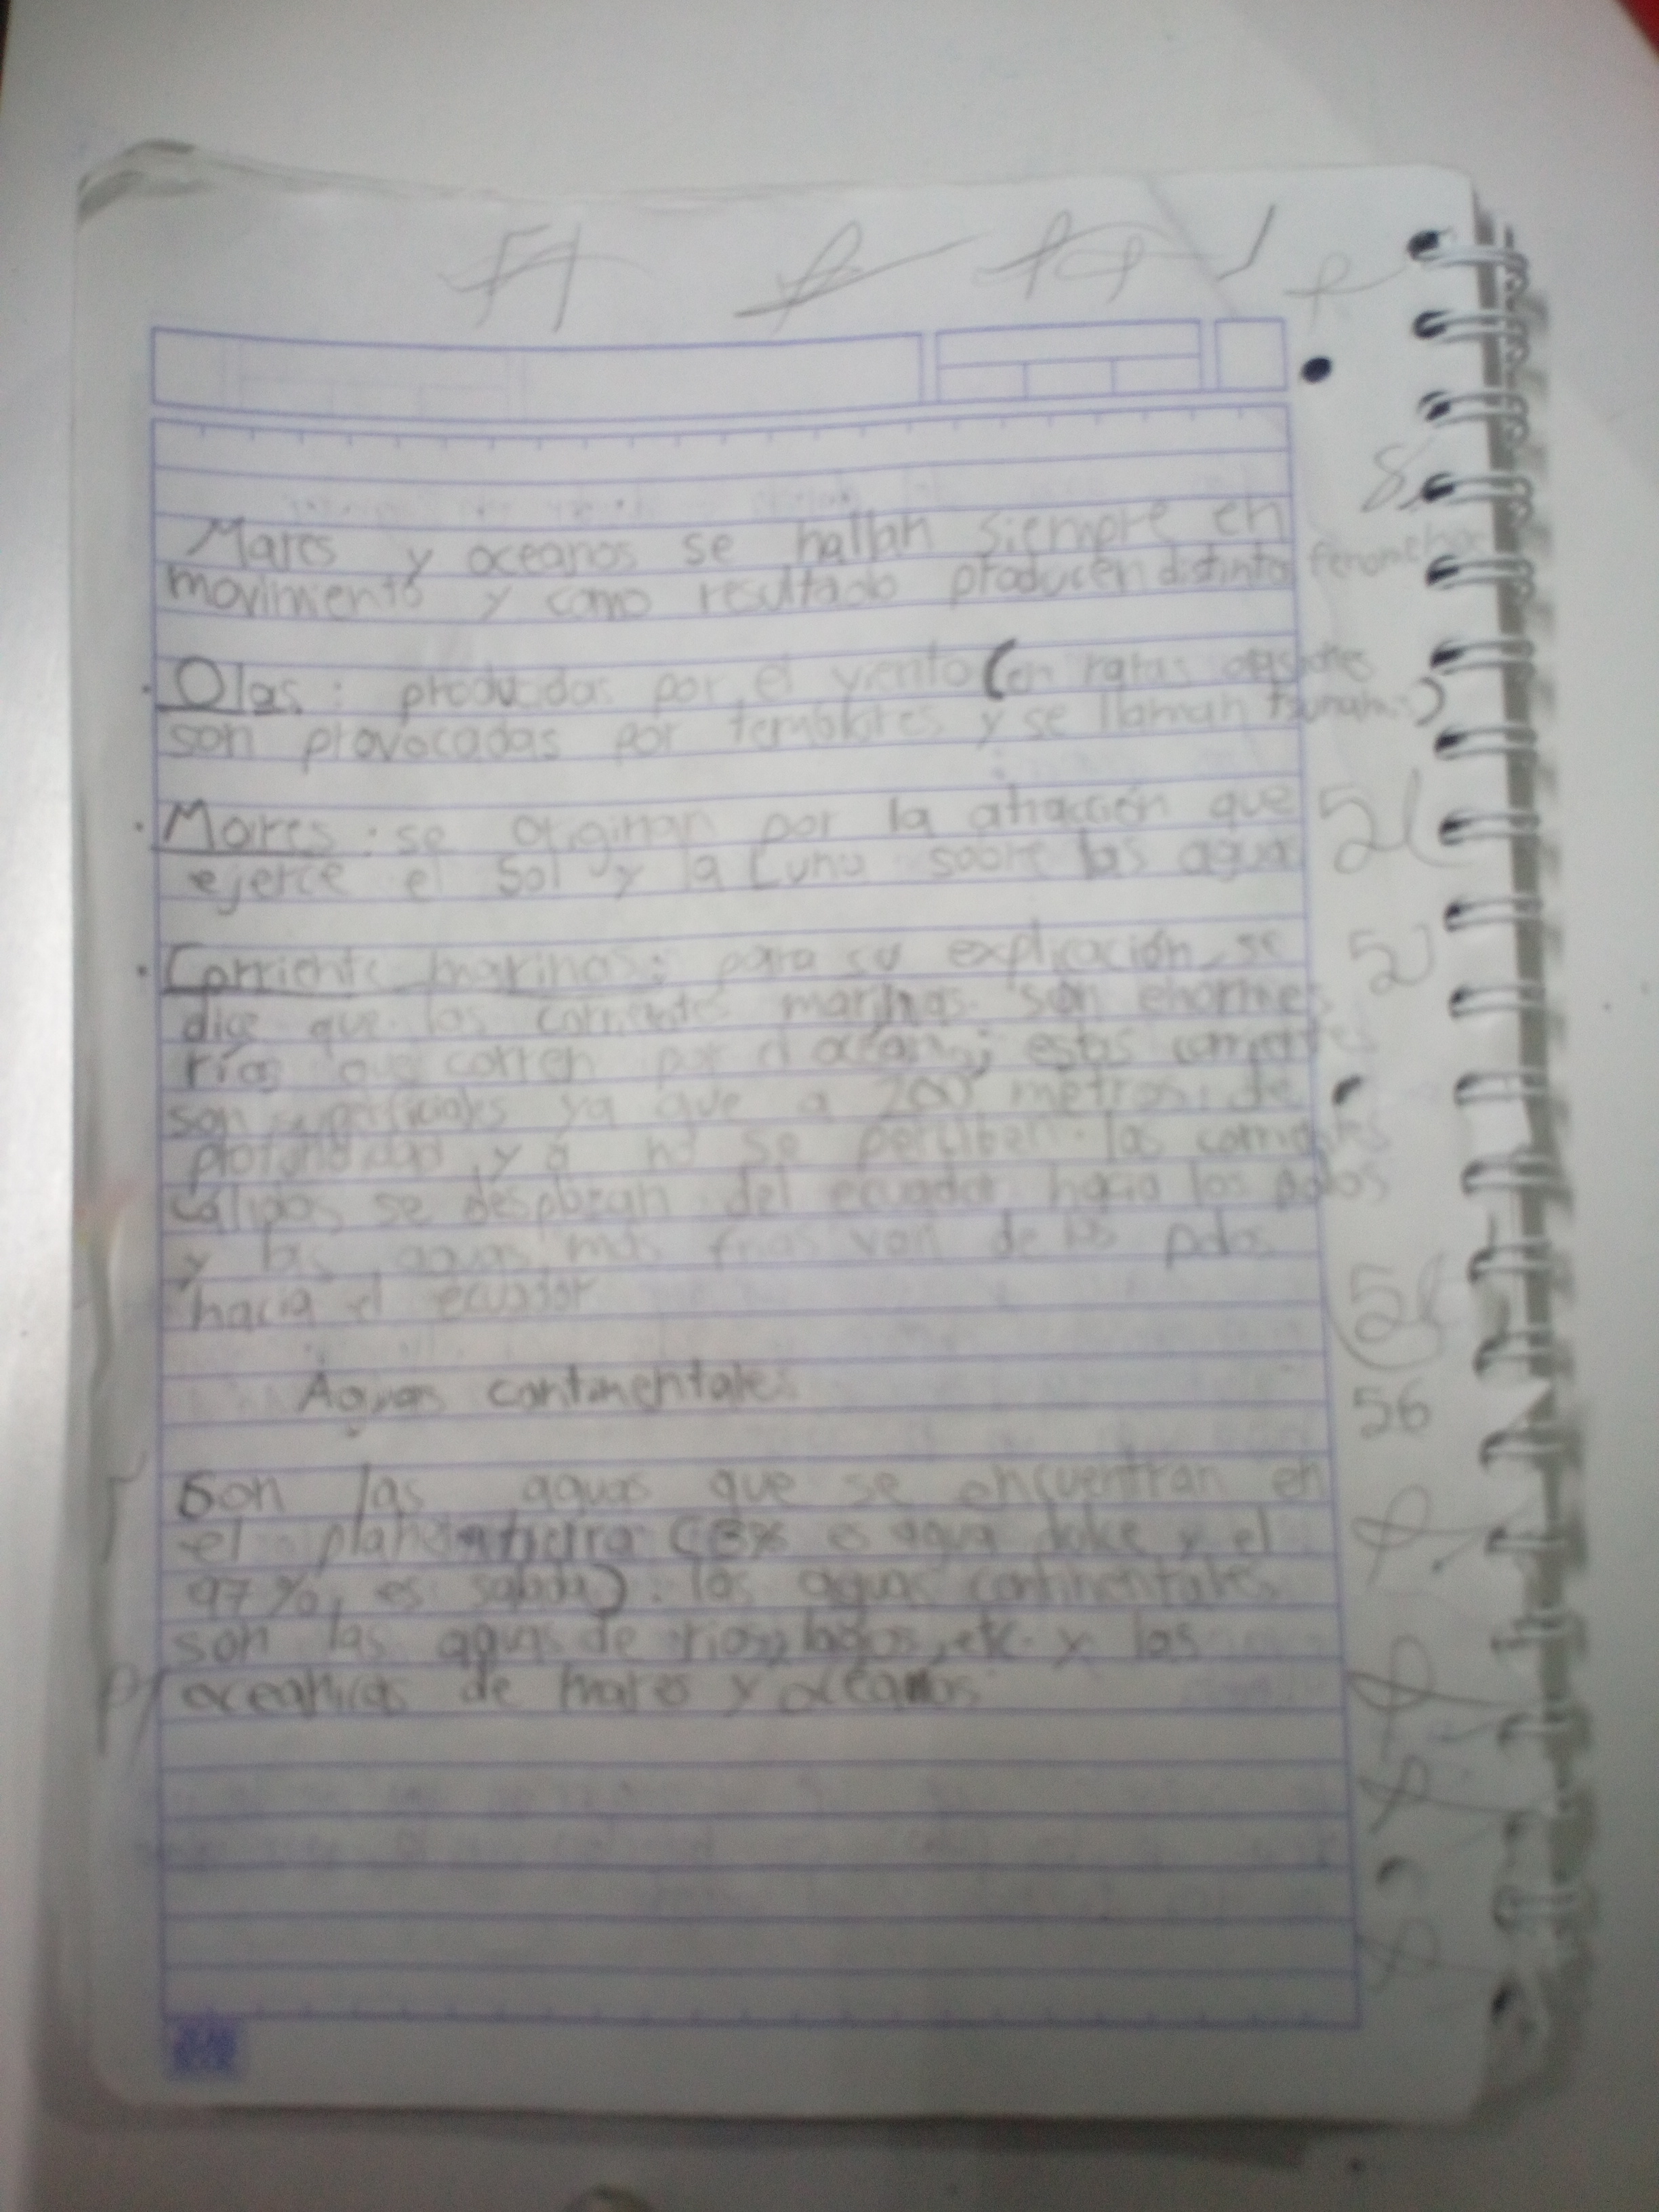 Mares y oceanos se hallan siempre en
movimiento y como resultado producen distintos fenomenos
. Olas: producidas por el viento (en raras ocasiones
son provocadas por temblores y se llaman tsunamis)
. Mares: se originan por la atracción que
ejerce el Sol y la Luna sobre las aguas
. Corriente marinas: para su explicación se
dice que las corrientes marinas son enormes
ríos que corren por el oceano; estas corrientes
son superficiales ya que a 200 metros de
profundidad ya no se perciben. las corrientes
calidas se desplazan del ecuador hacia los polos
y las aguas mas frias van de los polos
hacia el ecuador
Aguas continentales
Son las aguas que se encuentran en
el planeta tierra (3% es agua dulce y el
97% es salada). las aguas continentales
son las aguas de rios, lagos, etc. y las
oceanicas de mares y oceanos
56